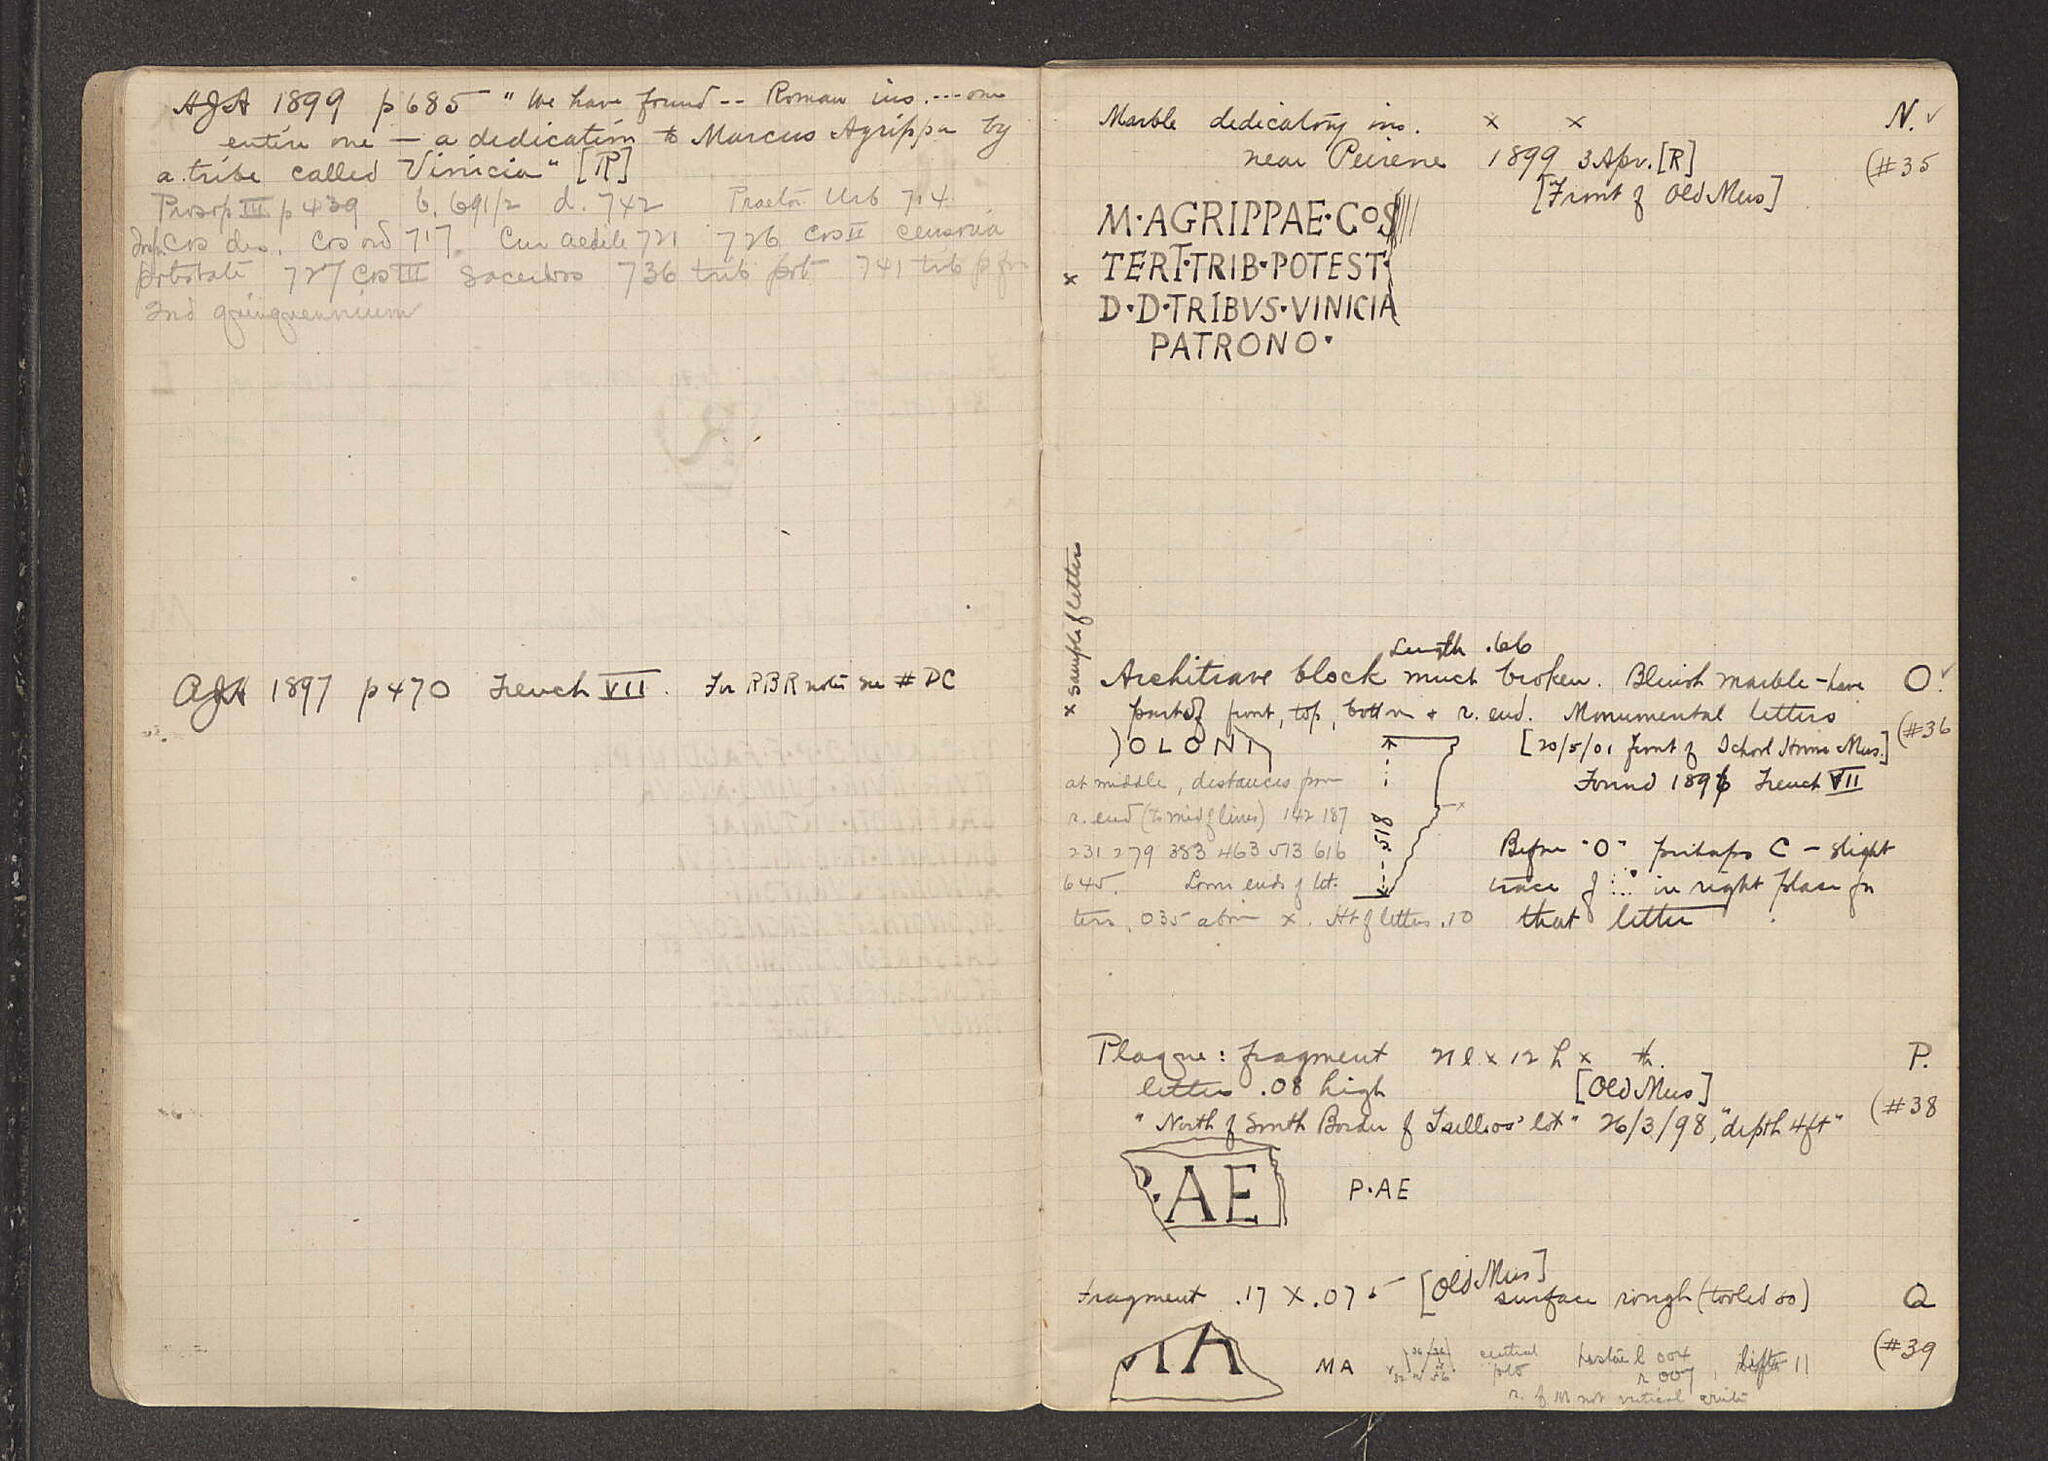 AJA 1899 p685 "We have found -- Roman ins.---- one
entire one — a dedication to Marcus Agrippa by
a tribe called Vinicia" [R]
Prosop III p 439 b. 691/2 d. 742 Praetor Urb 714
Cos des. Cos ord 717 Cur aedile 721 726 Cos II censoria
potestate 727 Cos III Sacerdos 736 trib pot 741 trib p
2nd quinquennium
AJA 1897 p470 Trench VII. For RBR notes see # DC
Marble dedicatory ins. x x N. ✓
near Peirene 1899 3 Apr. [R] (#35
[Front of Old Mus]
M·AGRIPPAE·COS
x TERT·TRIB·POTEST·
D·D·TRIBVS·VINICIA
PATRONO·
x sample of letters
Length .66
Architrave block much broken. Bluish marble – have O. ✓
part of front, top, bottom + r. end. Monumental letters (#36
)OLONI
[20/5/01 front of School House Mus.]
Found 1896 Trench VII
at middle, distances from
r. end (to mid of lines) 142 187
231 279 383 463 513 616
645. Lower ends of let-
ters .035 above x. Ht of letters .10
.518
Before "O" perhaps C – slight
trace of in right place for
that letter
Plaque: fragment 21 l x 12 h x th. P.
letters .08 high [Old Mus] (#38
"North of South Border of Tsellios' lot" 26/3/98, "depth 4ft"
P·AE
P·AE
Fragment .17 X .075 [Old Mus] Q
surface rough (tooled so)
MA
MA central
(#39
r. of M not vertical quite